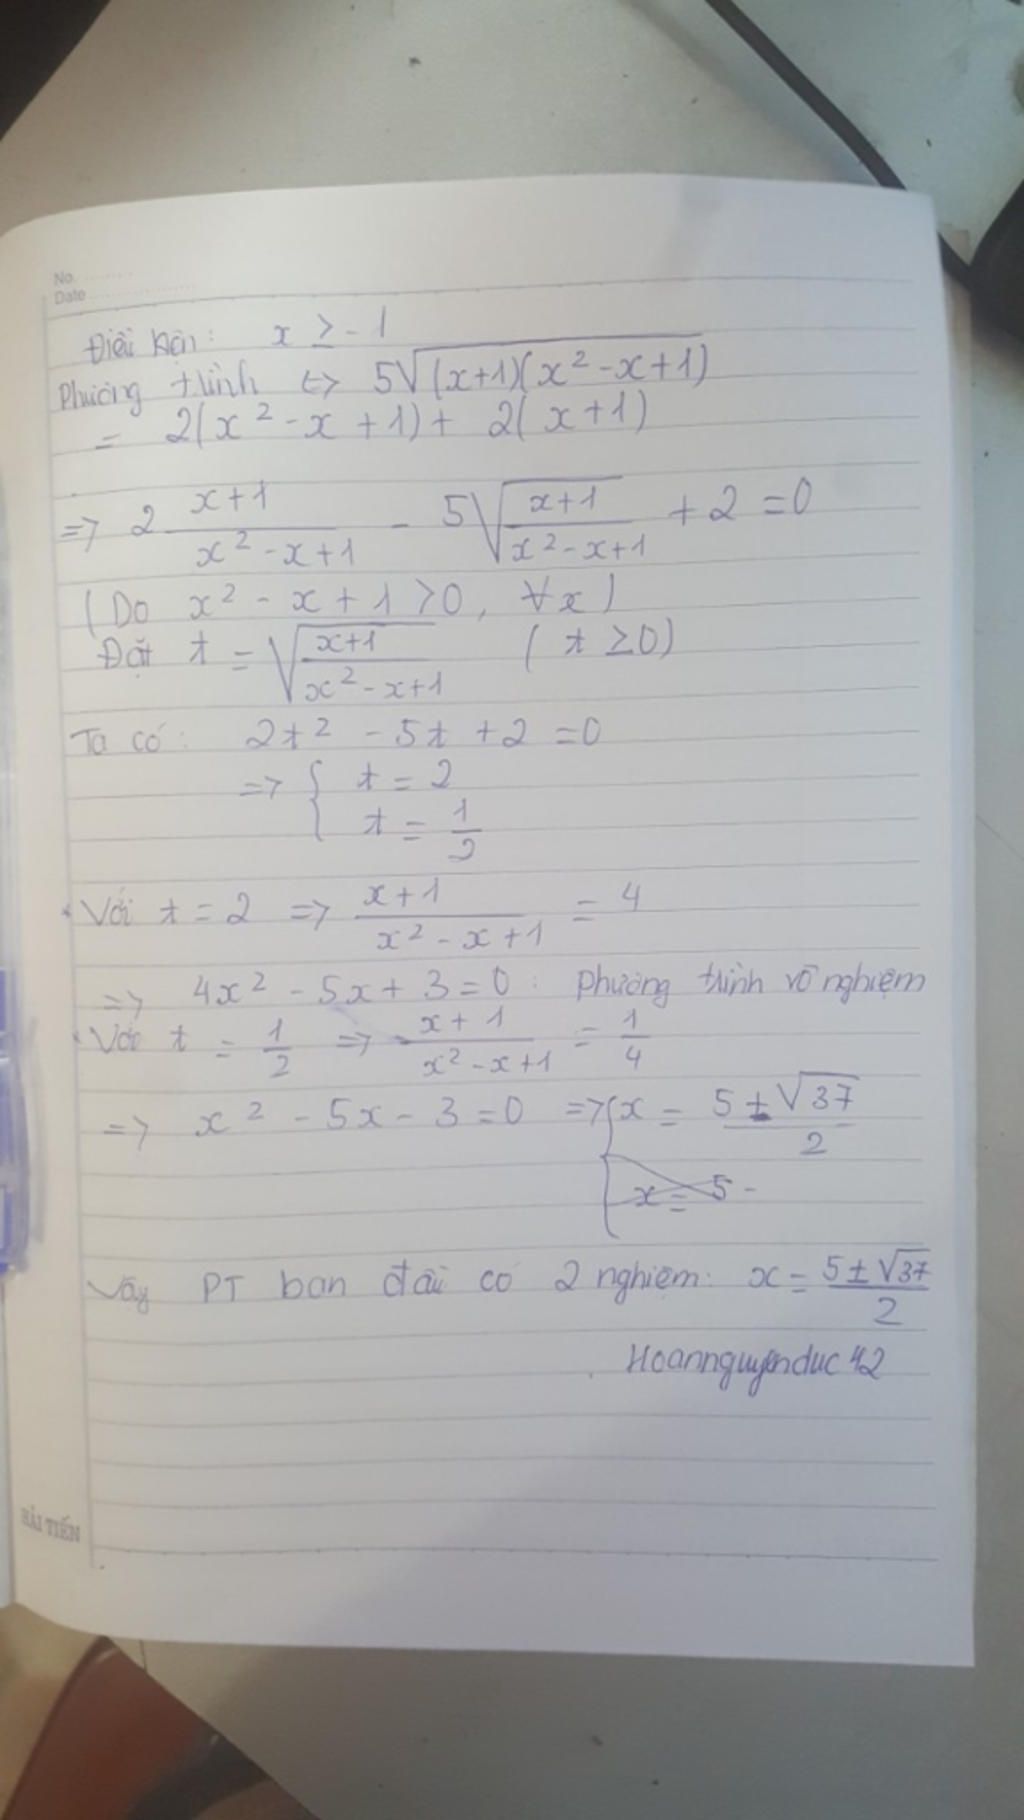 No.
Date
Điều kện: x ≥ -1
Phương trình <=> 5√((x+1)(x² - x + 1))
= 2(x² - x + 1) + 2(x + 1)
=> 2 (x+1)/(x² - x + 1) - 5√((x+1)/(x² - x + 1)) + 2 = 0
(Do x² - x + 1 > 0, ∀x)
Đặt t = √((x+1)/(x² - x + 1)) (t ≥ 0)
Ta có: 2t² - 5t + 2 = 0
=> { t = 2
t = 1/2
Với t = 2 => (x+1)/(x² - x + 1) = 4
=> 4x² - 5x + 3 = 0 : Phương trình vô nghiệm
Với t = 1/2 => (x+1)/(x² - x + 1) = 1/4
=> x² - 5x - 3 = 0 => { x = (5 ± √37)/2
x = 5 -
Vậy PT ban đầu có 2 nghiệm: x = (5 ± √37)/2
Hoannguyenduc 42
HẢI TIẾN